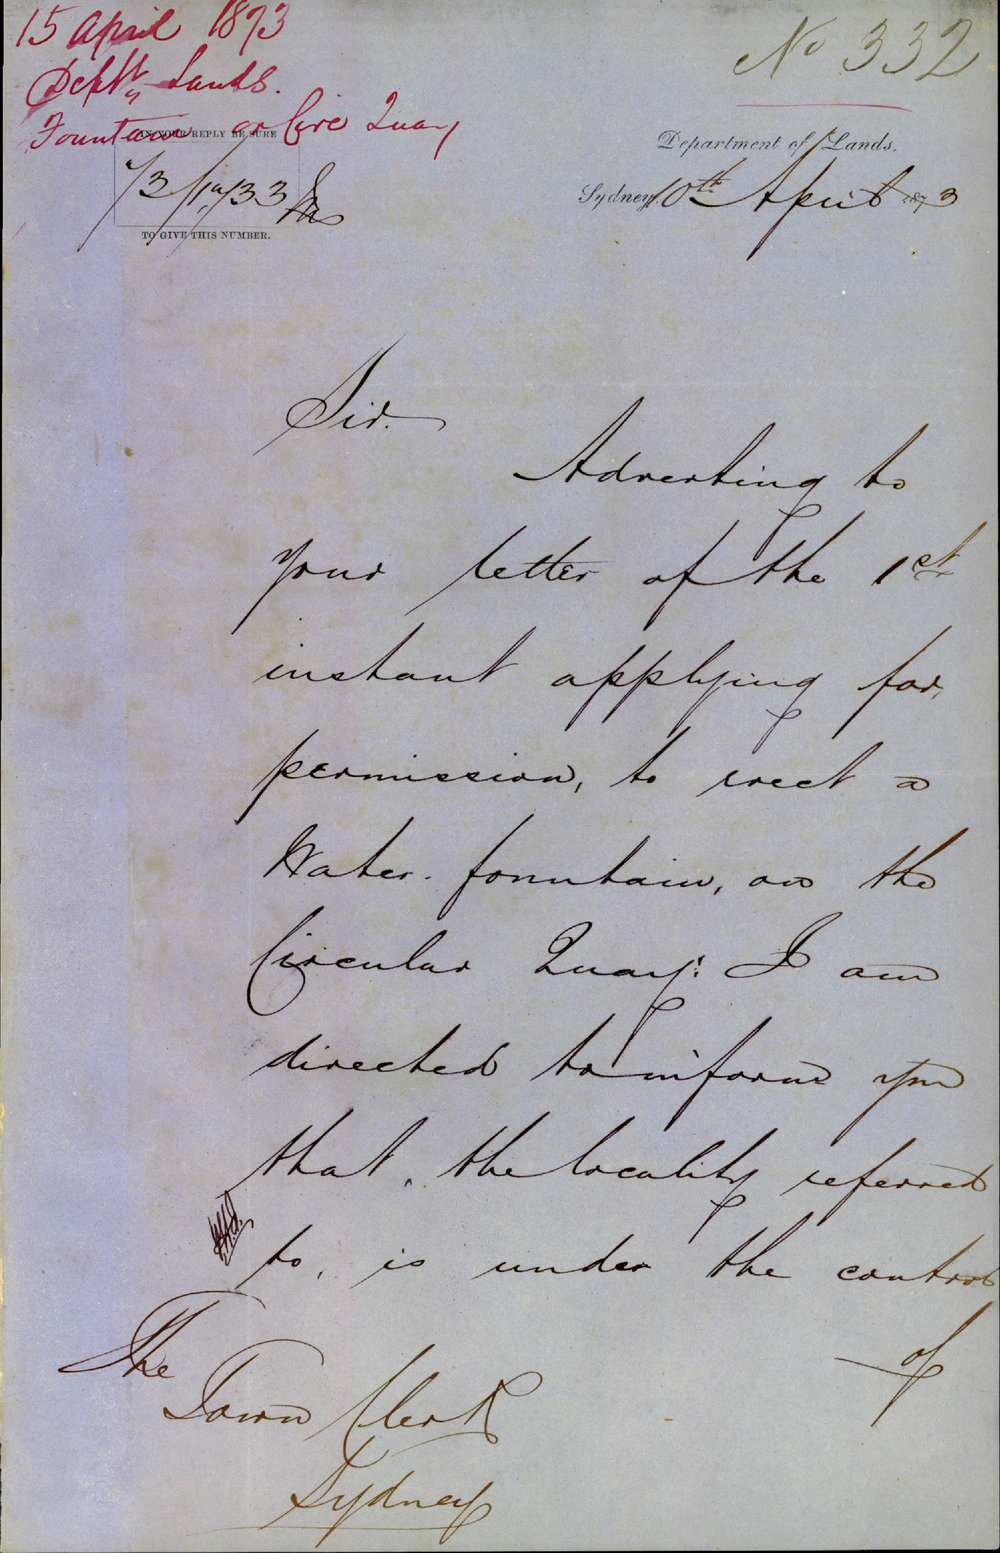 15 April 1873
No 332
Deptt Lands.
Fountain on Circ Quay
IN YOUR REPLY BE SURE
TO GIVE THIS NUMBER.
Department of Lands.
Sydney 10th April 1873
Sir.
Adverting to
your letter of the 1st
instant applying for,
permission, to erect a
Water. fountain, on the
Circular Quay: I am
directed to inform you
that, the locality referred
to, is under the control
of
The
Town Clerk
Sydney